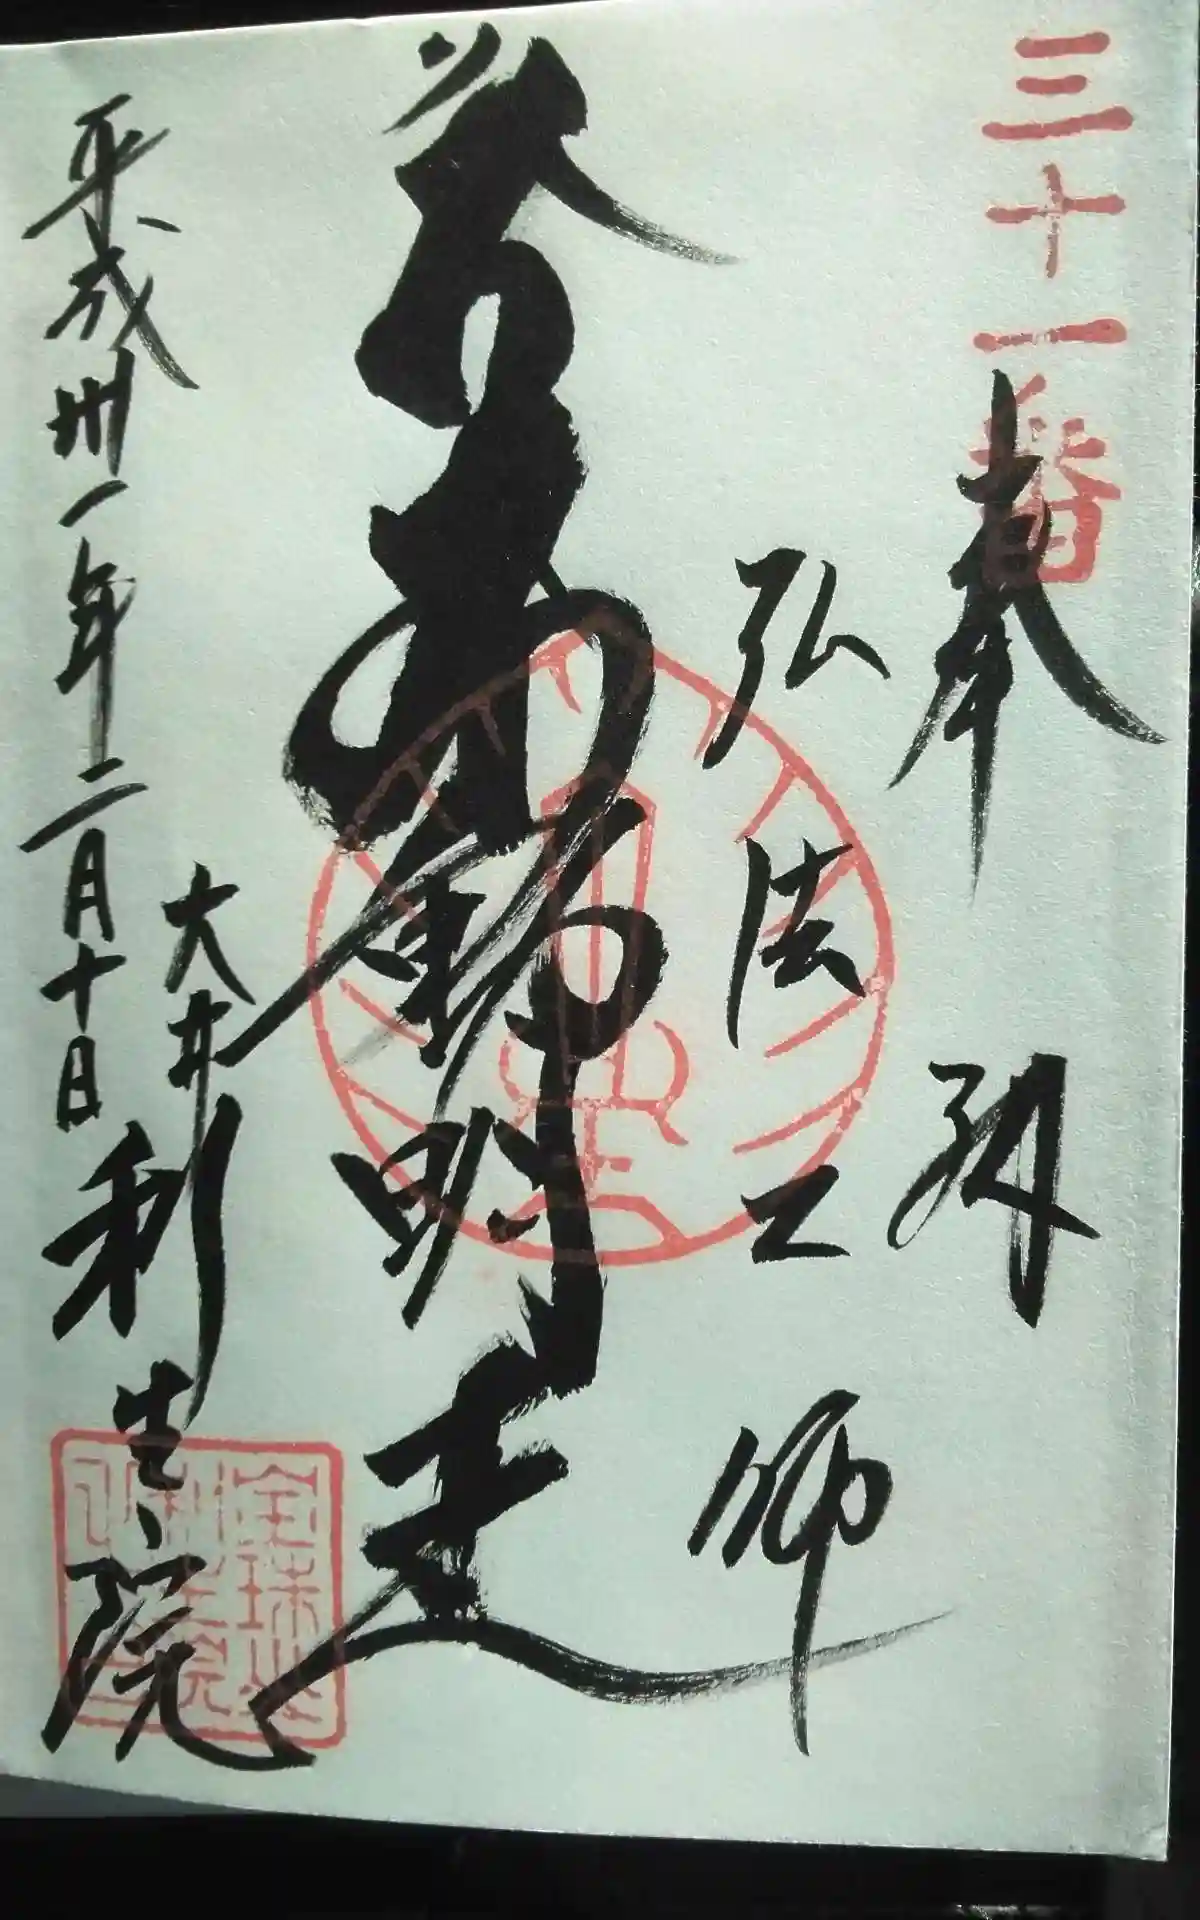 三十一番
奉納
弘法大師
不動明王
平成卅一年二月十日
大井
利生院
宝珠山
利生院